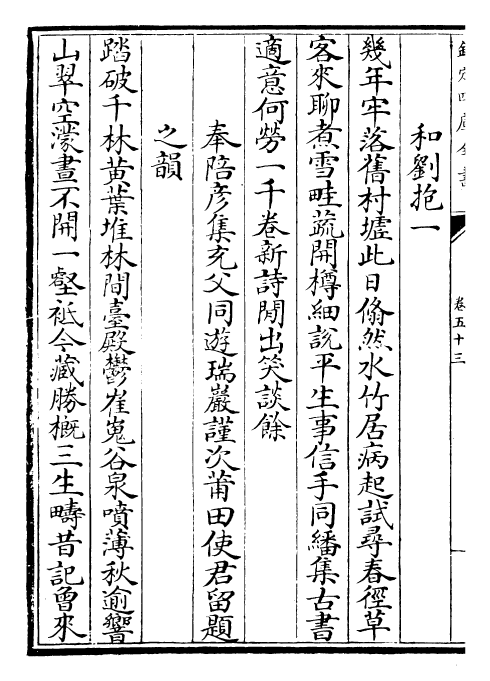 欽定四庫全書
卷五十三
和劉抱一
幾年牢落舊村墟此日翛然水竹居病起試尋春徑草
客來聊煮雪畦蔬開樽細說平生事信手同繙集古書
適意何勞一千卷新詩閒出笑談餘
奉陪彦集充父同遊瑞巖謹次莆田使君留題
之韻
踏破千林黄葉堆林間臺殿鬱崔嵬谷泉噴薄秋逾響
山翠空濛晝不開一壑袛今藏勝概三生疇昔記曾來